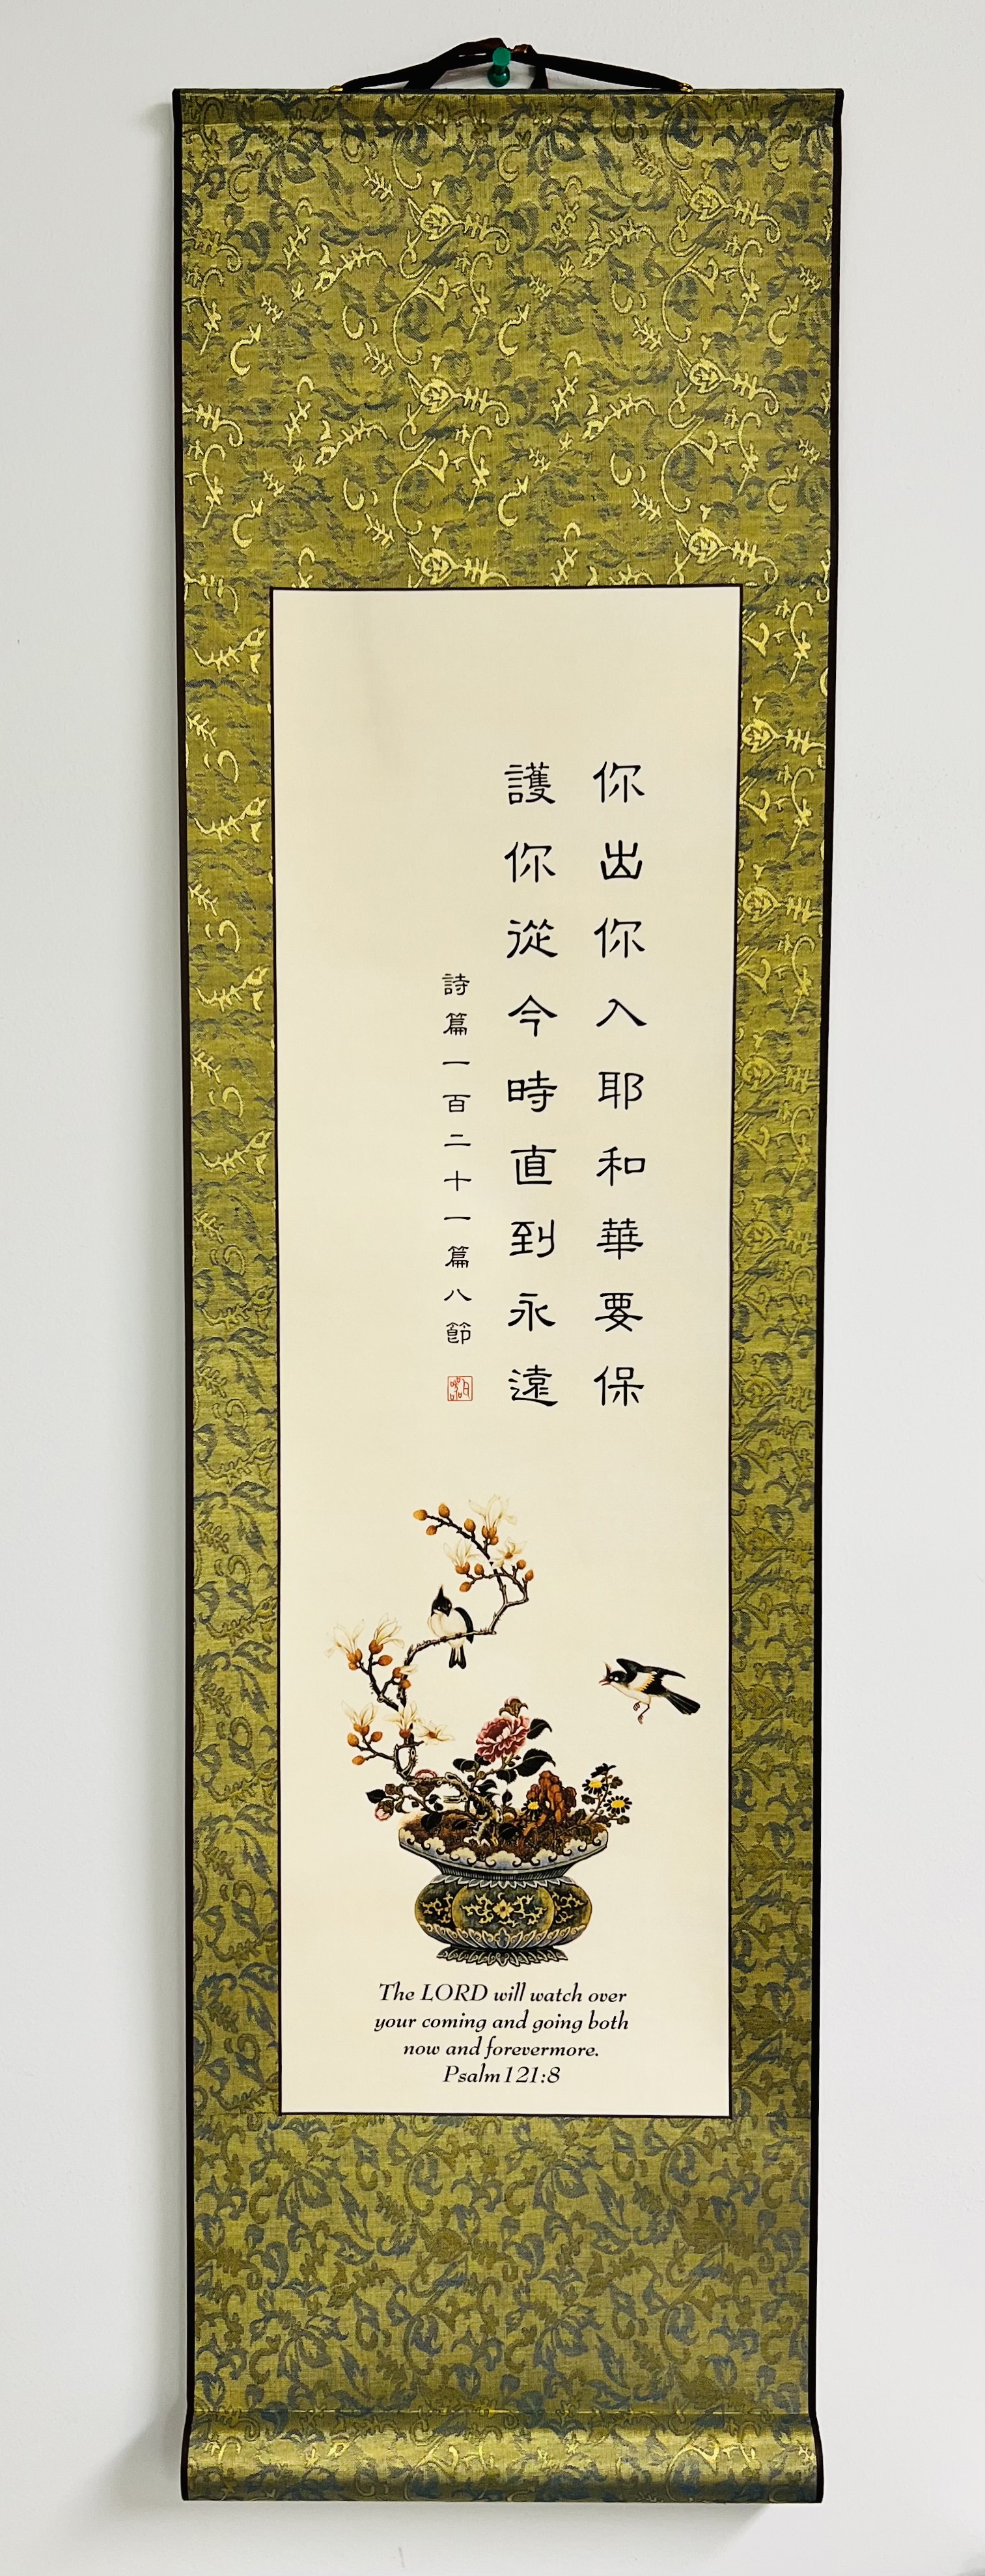 你出你入耶和華要保
護你從今時直到永遠
詩篇一百二十一篇八節
The LORD will watch over
your coming and going both
now and forevermore.
Psalm 121:8